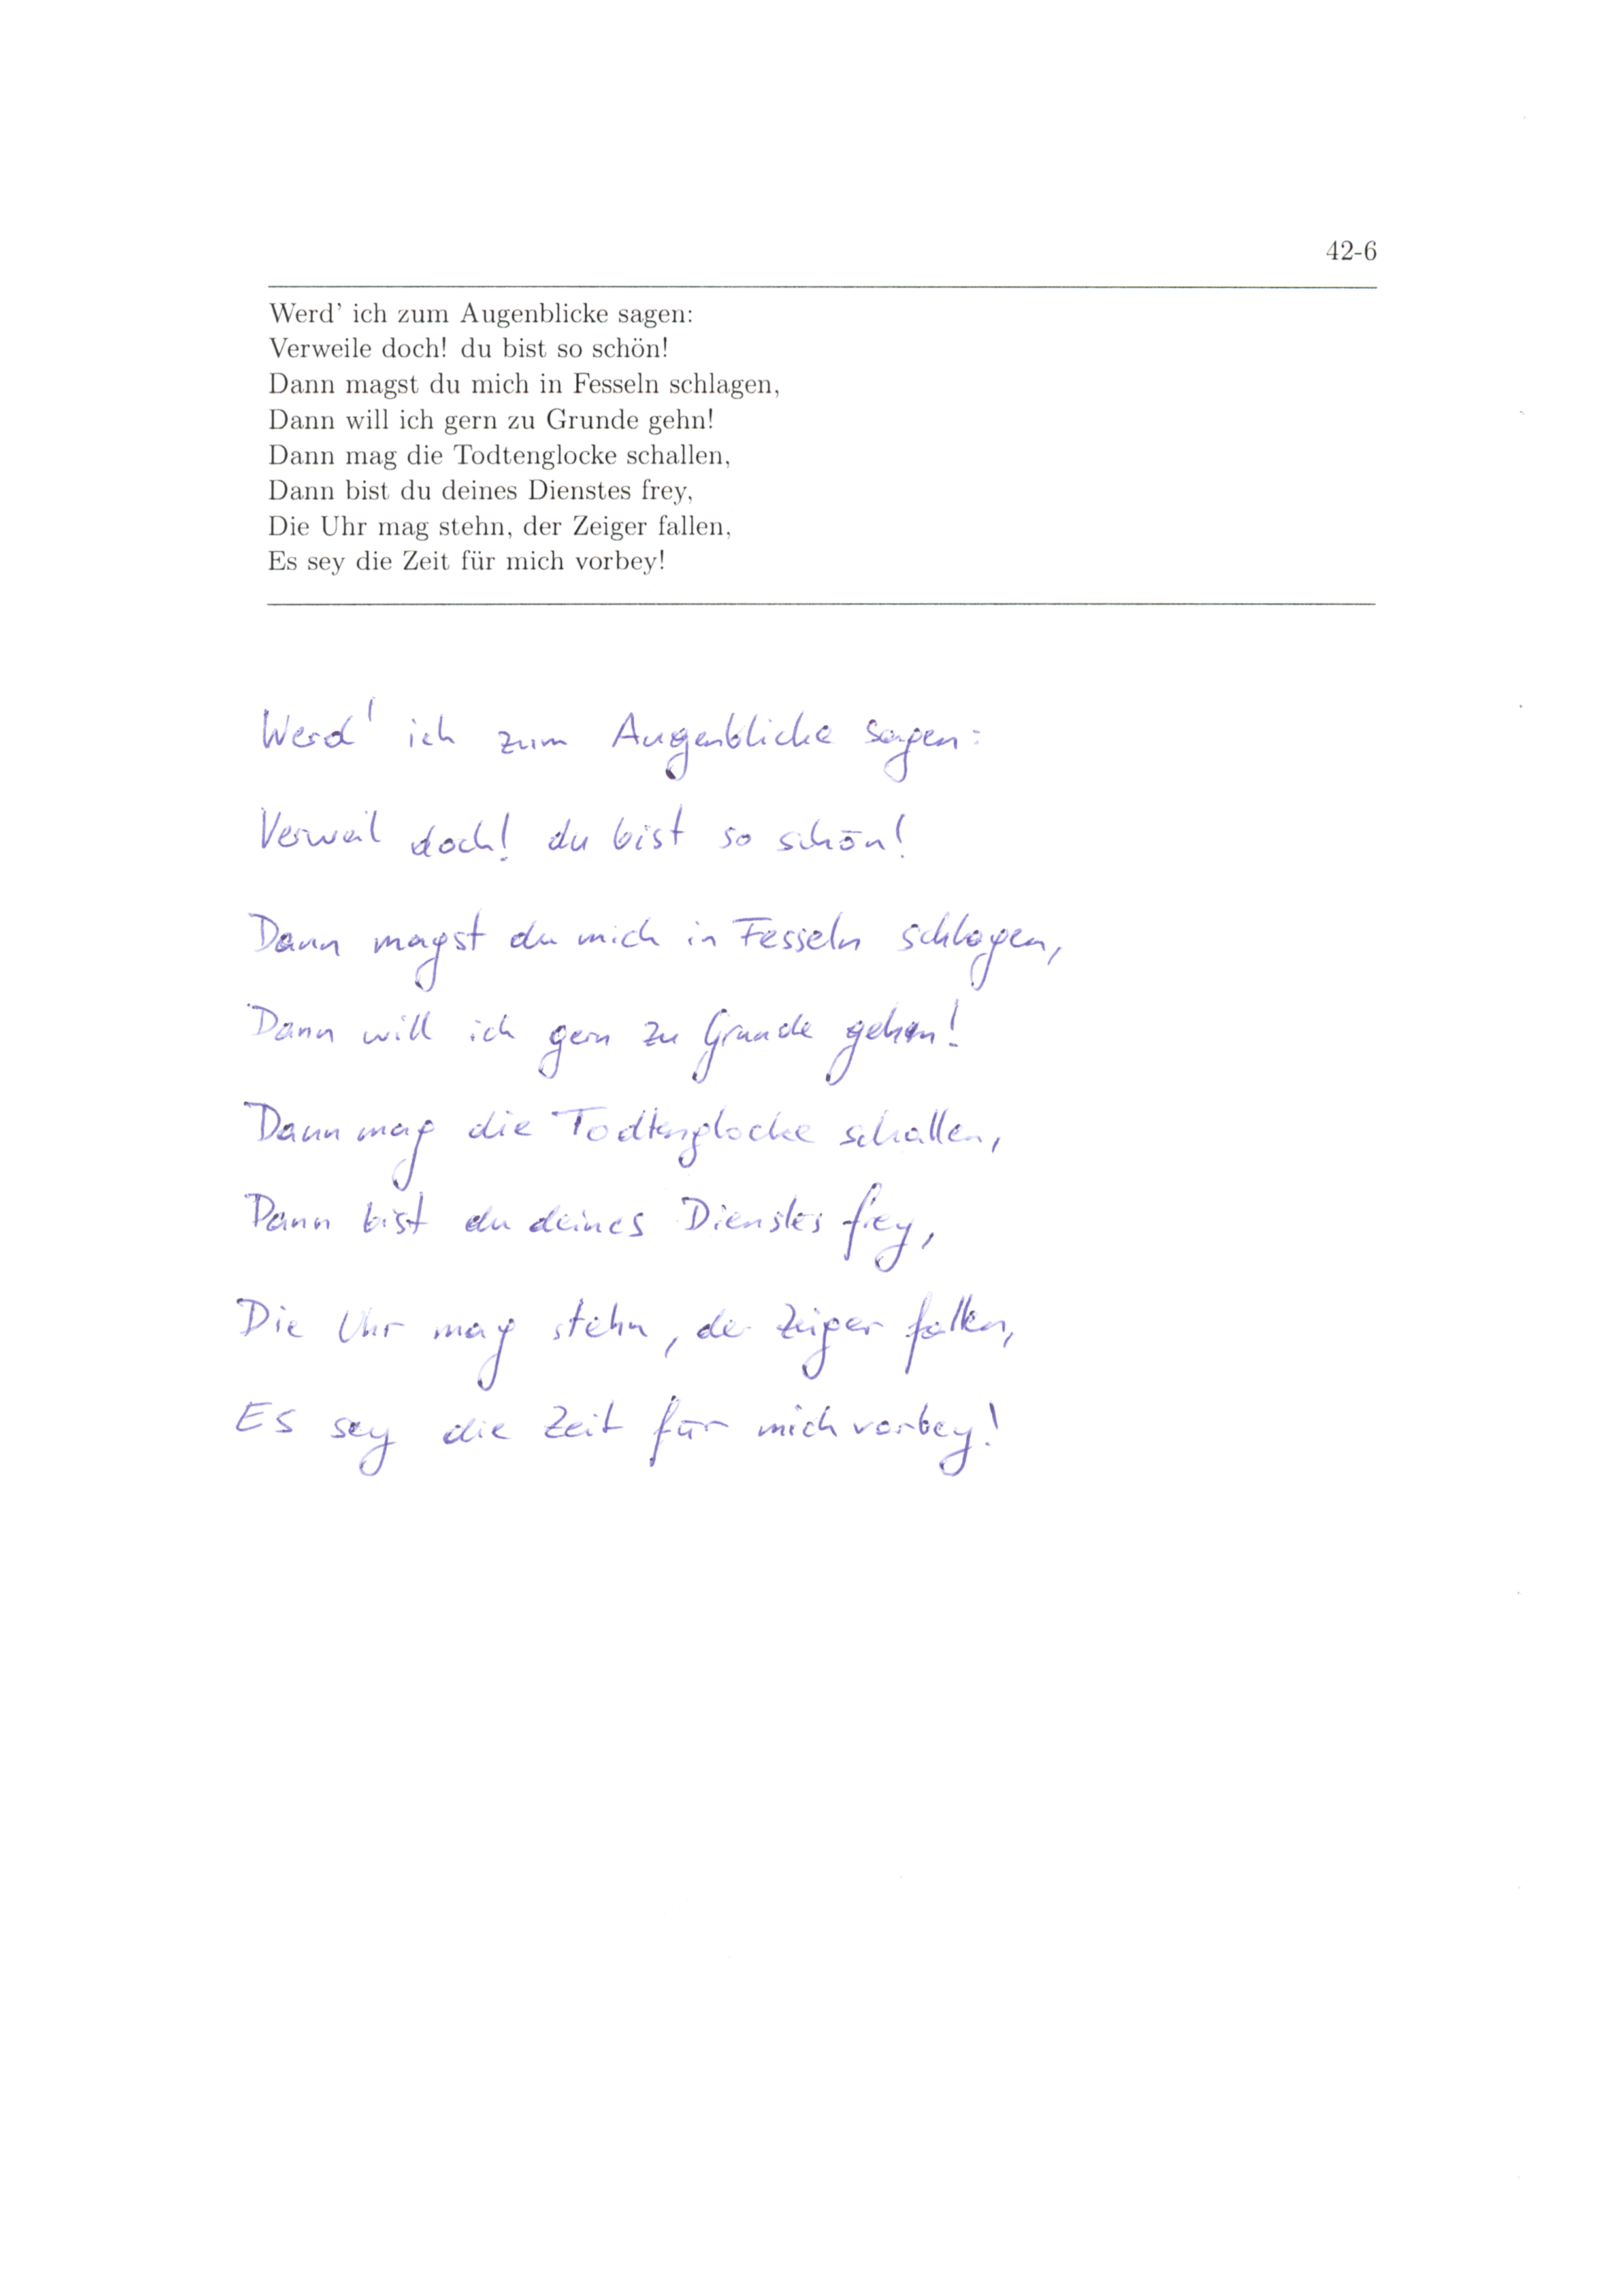 42-6
Werd' ich zum Augenblicke sagen:
Verweile doch! du bist so schön!
Dann magst du mich in Fesseln schlagen,
Dann will ich gern zu Grunde gehn!
Dann mag die Todtenglocke schallen,
Dann bist du deines Dienstes frey,
Die Uhr mag stehn, der Zeiger fallen,
Es sey die Zeit für mich vorbey!
Werd' ich zum Augenblicke sagen:
Verweil doch! du bist so schön!
Dann magst du mich in Fesseln schlagen,
Dann will ich gern zu Grunde gehen!
Dann mag die Todtenglocke schallen,
Dann bist du deines Dienstes frey,
Die Uhr mag stehn, der Zeiger fallen,
Es sey die Zeit für mich vorbey!